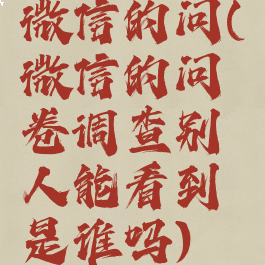 微信的问(
微信的问
卷调查别
人能看到
是谁吗)